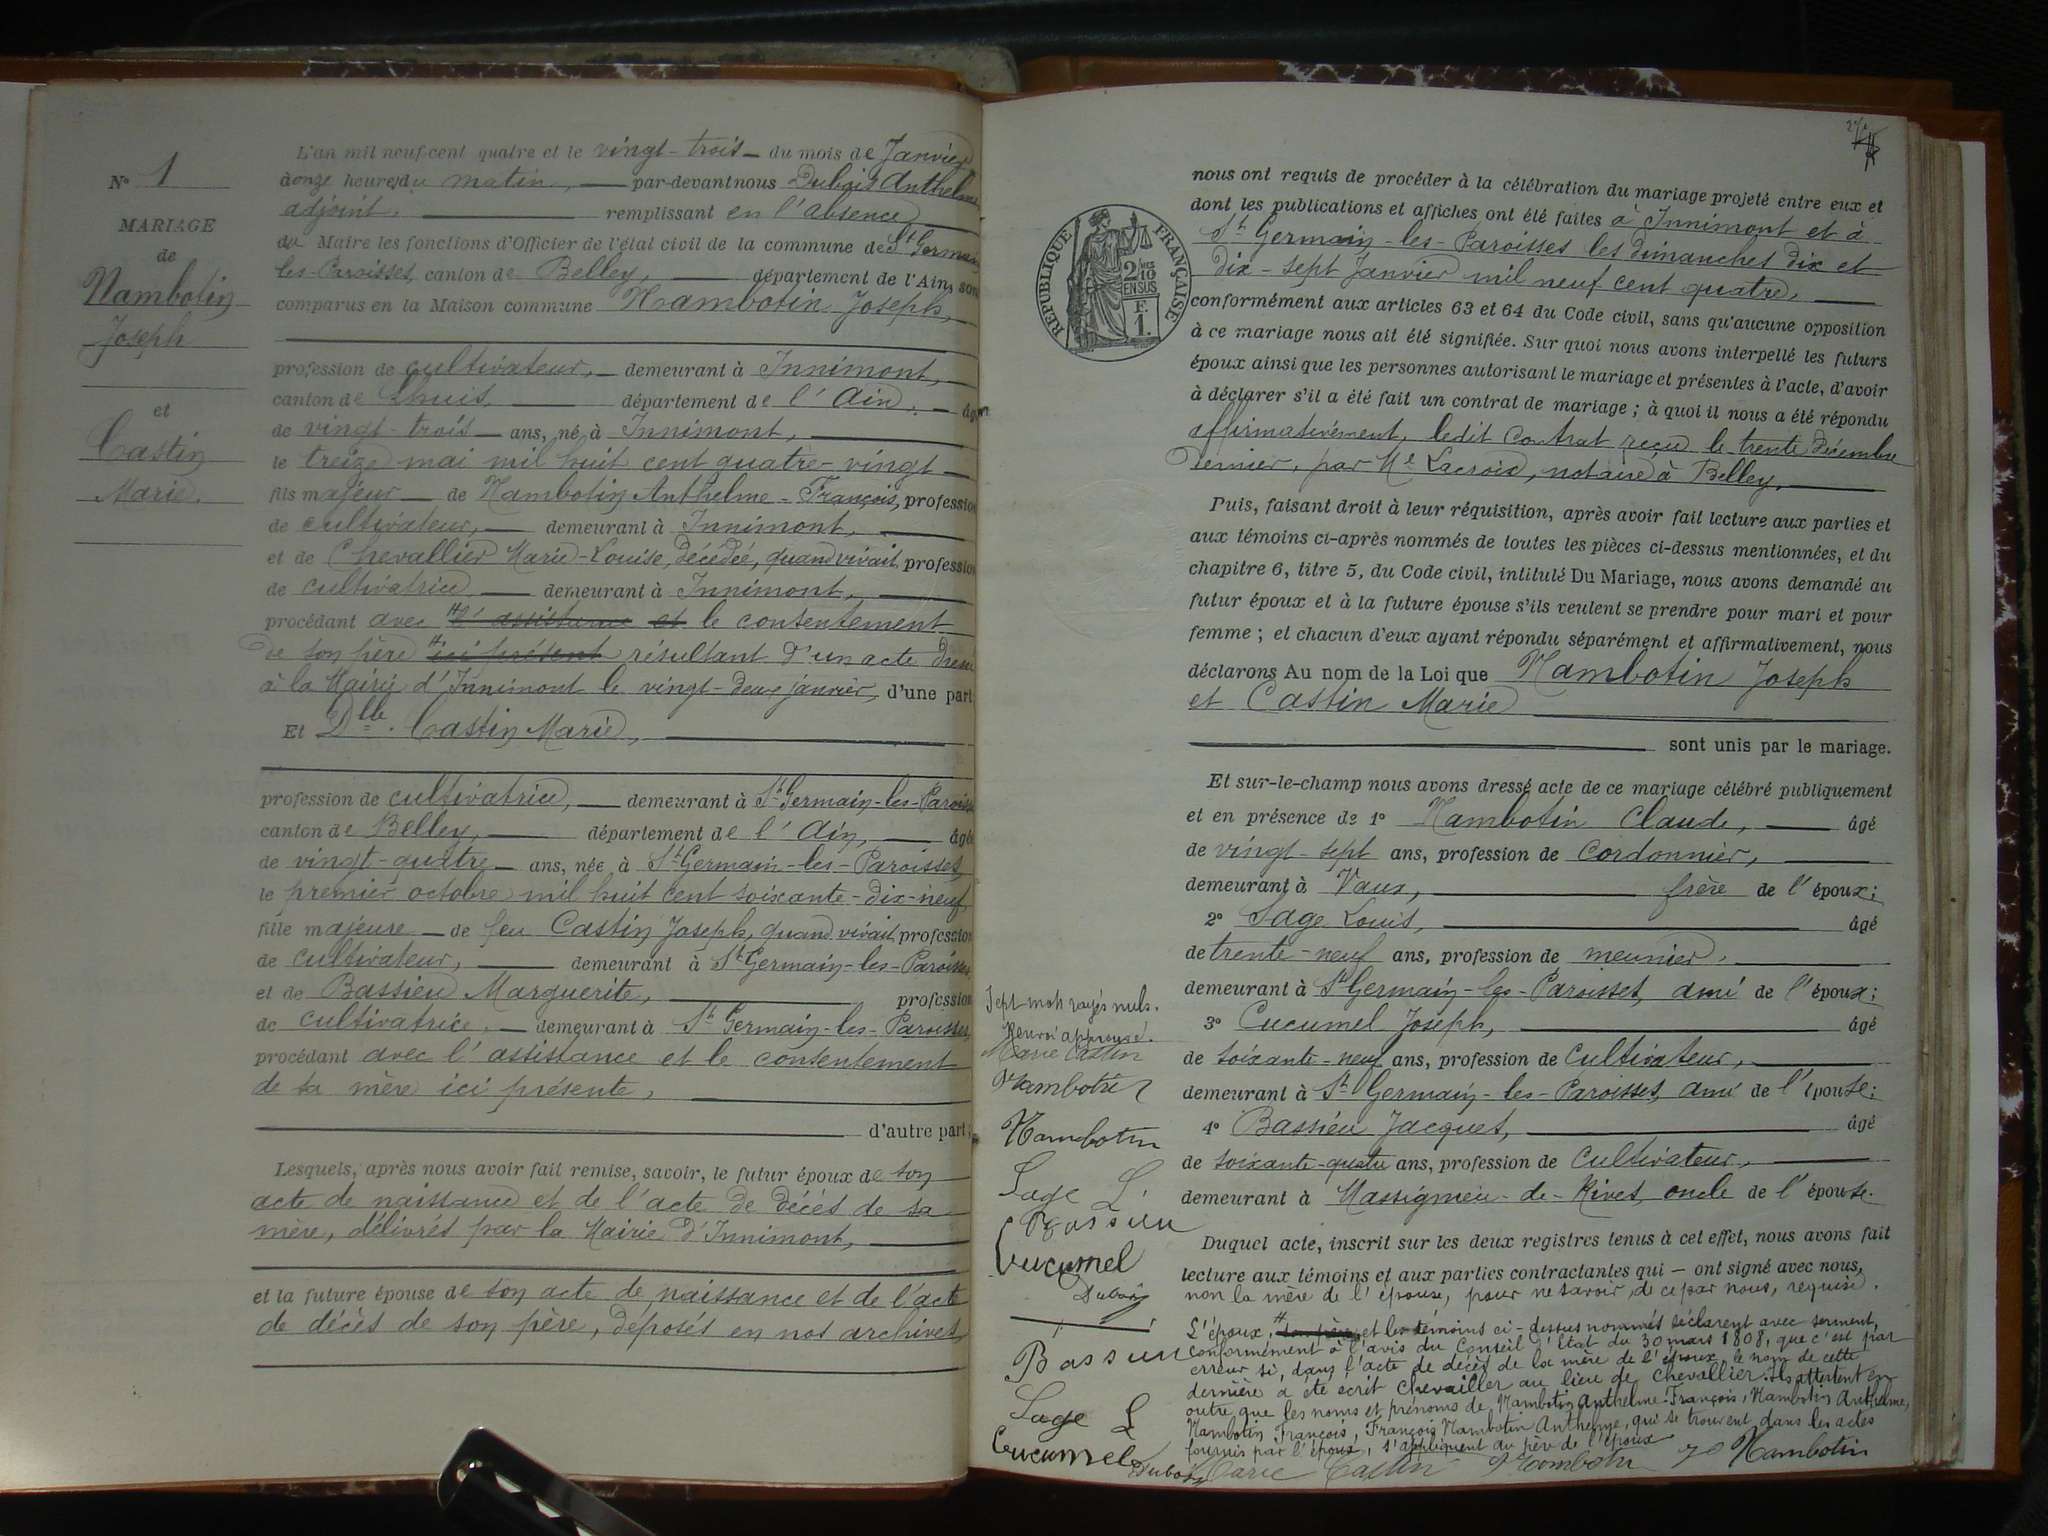 N° 1
MARIAGE
de
Nambotin
Joseph
et
Castin
Marie.
L'an mil neuf-cent quatre et le vingt-trois du mois de Janvier
à onze heures du matin, par-devant nous Dubois Anthelme
adjoint, remplissant en l'absence
du Maire les fonctions d'Officier de l'état civil de la commune de St Germain
les-Paroisses, canton de Belley, département de l'Ain, sont
comparus en la Maison commune Nambotin Joseph,
profession de cultivateur, demeurant à Innimont,
canton de Lhuis, département de l'Ain, âgé
de vingt-trois ans, né à Innimont,
le treize mai mil huit cent quatre-vingt
fils majeur de Nambotin Anthelme-François, profession
de cultivateur, demeurant à Innimont,
et de Chevallier Marie-Louise, décédée, quand vivait profession
de cultivatrice demeurant à Innimont,
procédant avec l'assistance et le consentement
de son père ici présent résultant d'un acte dressé
à la Mairie d'Innimont le vingt-deux janvier, d'une part
Et Dlle Castin Marie,
profession de cultivatrice, demeurant à St Germain-les-Paroisses
canton de Belley, département de l'Ain, âgée
de vingt-quatre ans, née à St Germain-les-Paroisses,
le premier octobre mil huit cent soixante-dix-neuf,
fille majeure de feu Castin Joseph, quand vivait profession
de cultivateur, demeurant à St Germain-les-Paroisses
et de Bassieu Marguerite, profession
de cultivatrice, demeurant à St Germain-les-Paroisses,
procédant avec l'assistance et le consentement
de sa mère ici présente,
d'autre part;
Lesquels, après nous avoir fait remise, savoir, le futur époux de son
acte de naissance et de l'acte de décès de sa
mère, délivrés par la Mairie d'Innimont,
et la future épouse de son acte de naissance et de l'acte
de décès de son père, déposés en nos archives
RÉPUBLIQUE FRANÇAISE
2/10
EN SUS
F.
1.
nous ont requis de procéder à la célébration du mariage projeté entre eux et
dont les publications et affiches ont été faites à Innimont et à
St Germain-les-Paroisses les dimanches dix et
dix-sept Janvier mil neuf cent quatre,
conformément aux articles 63 et 64 du Code civil, sans qu'aucune opposition
à ce mariage nous ait été signifiée. Sur quoi nous avons interpellé les futurs
époux ainsi que les personnes autorisant le mariage et présentes à l'acte, d'avoir
à déclarer s'il a été fait un contrat de mariage; à quoi il nous a été répondu
affirmativement, ledit contrat reçu le trente décembre
dernier, par Me Lacroix, notaire à Belley,
Puis, faisant droit à leur réquisition, après avoir fait lecture aux parties et
aux témoins ci-après nommés de toutes les pièces ci-dessus mentionnées, et du
chapitre 6, titre 5, du Code civil, intitulé Du Mariage, nous avons demandé au
futur époux et à la future épouse s'ils veulent se prendre pour mari et pour
femme; et chacun d'eux ayant répondu séparément et affirmativement, nous
déclarons Au nom de la Loi que Nambotin Joseph
et Castin Marie
sont unis par le mariage.
Et sur-le-champ nous avons dressé acte de ce mariage célébré publiquement
et en présence de 1° Nambotin Claude, âgé
de vingt-sept ans, profession de cordonnier,
demeurant à Vaux, frère de l'époux;
2° Sage Louis, âgé
de trente-neuf ans, profession de meunier,
demeurant à St Germain-les-Paroisses, ami de l'époux;
3° Cucumel Joseph, âgé
de soixante-neuf ans, profession de cultivateur,
demeurant à St Germain-les-Paroisses, ami de l'épouse;
4° Bassieu Jacques, âgé
de soixante-quatre ans, profession de cultivateur,
demeurant à Massignieu-de-Rives, oncle de l'épouse.
Duquel acte, inscrit sur les deux registres tenus à cet effet, nous avons fait
lecture aux témoins et aux parties contractantes qui ont signé avec nous,
non la mère de l'épouse, pour ne savoir, de ce par nous, requise.
L'époux, et les témoins ci-dessus nommés déclarent avec serment,
conformément à l'avis du Conseil d'Etat du 30 mars 1808, que c'est par
erreur si, dans l'acte de décès de la mère de l'époux, le nom de cette
dernière a été écrit Chevailler au lieu de Chevallier. Ils attestent en
outre que les noms et prénoms de Nambotin Anthelme-François, Nambotin Anthelme,
Nambotin François, François Nambotin Anthelme, qui se trouvent dans les actes
fournis par l'époux, s'appliquent au père de l'époux
Marie Castin Nambotin Nambotin
Sept mots rayés nuls.
Renvoi approuvé.
Marie Castin
Nambotin
Nambotin
Sage L
Bassieu
Cucumel
Dubois
Bassieu
Sage L
Cucumel
Dubois